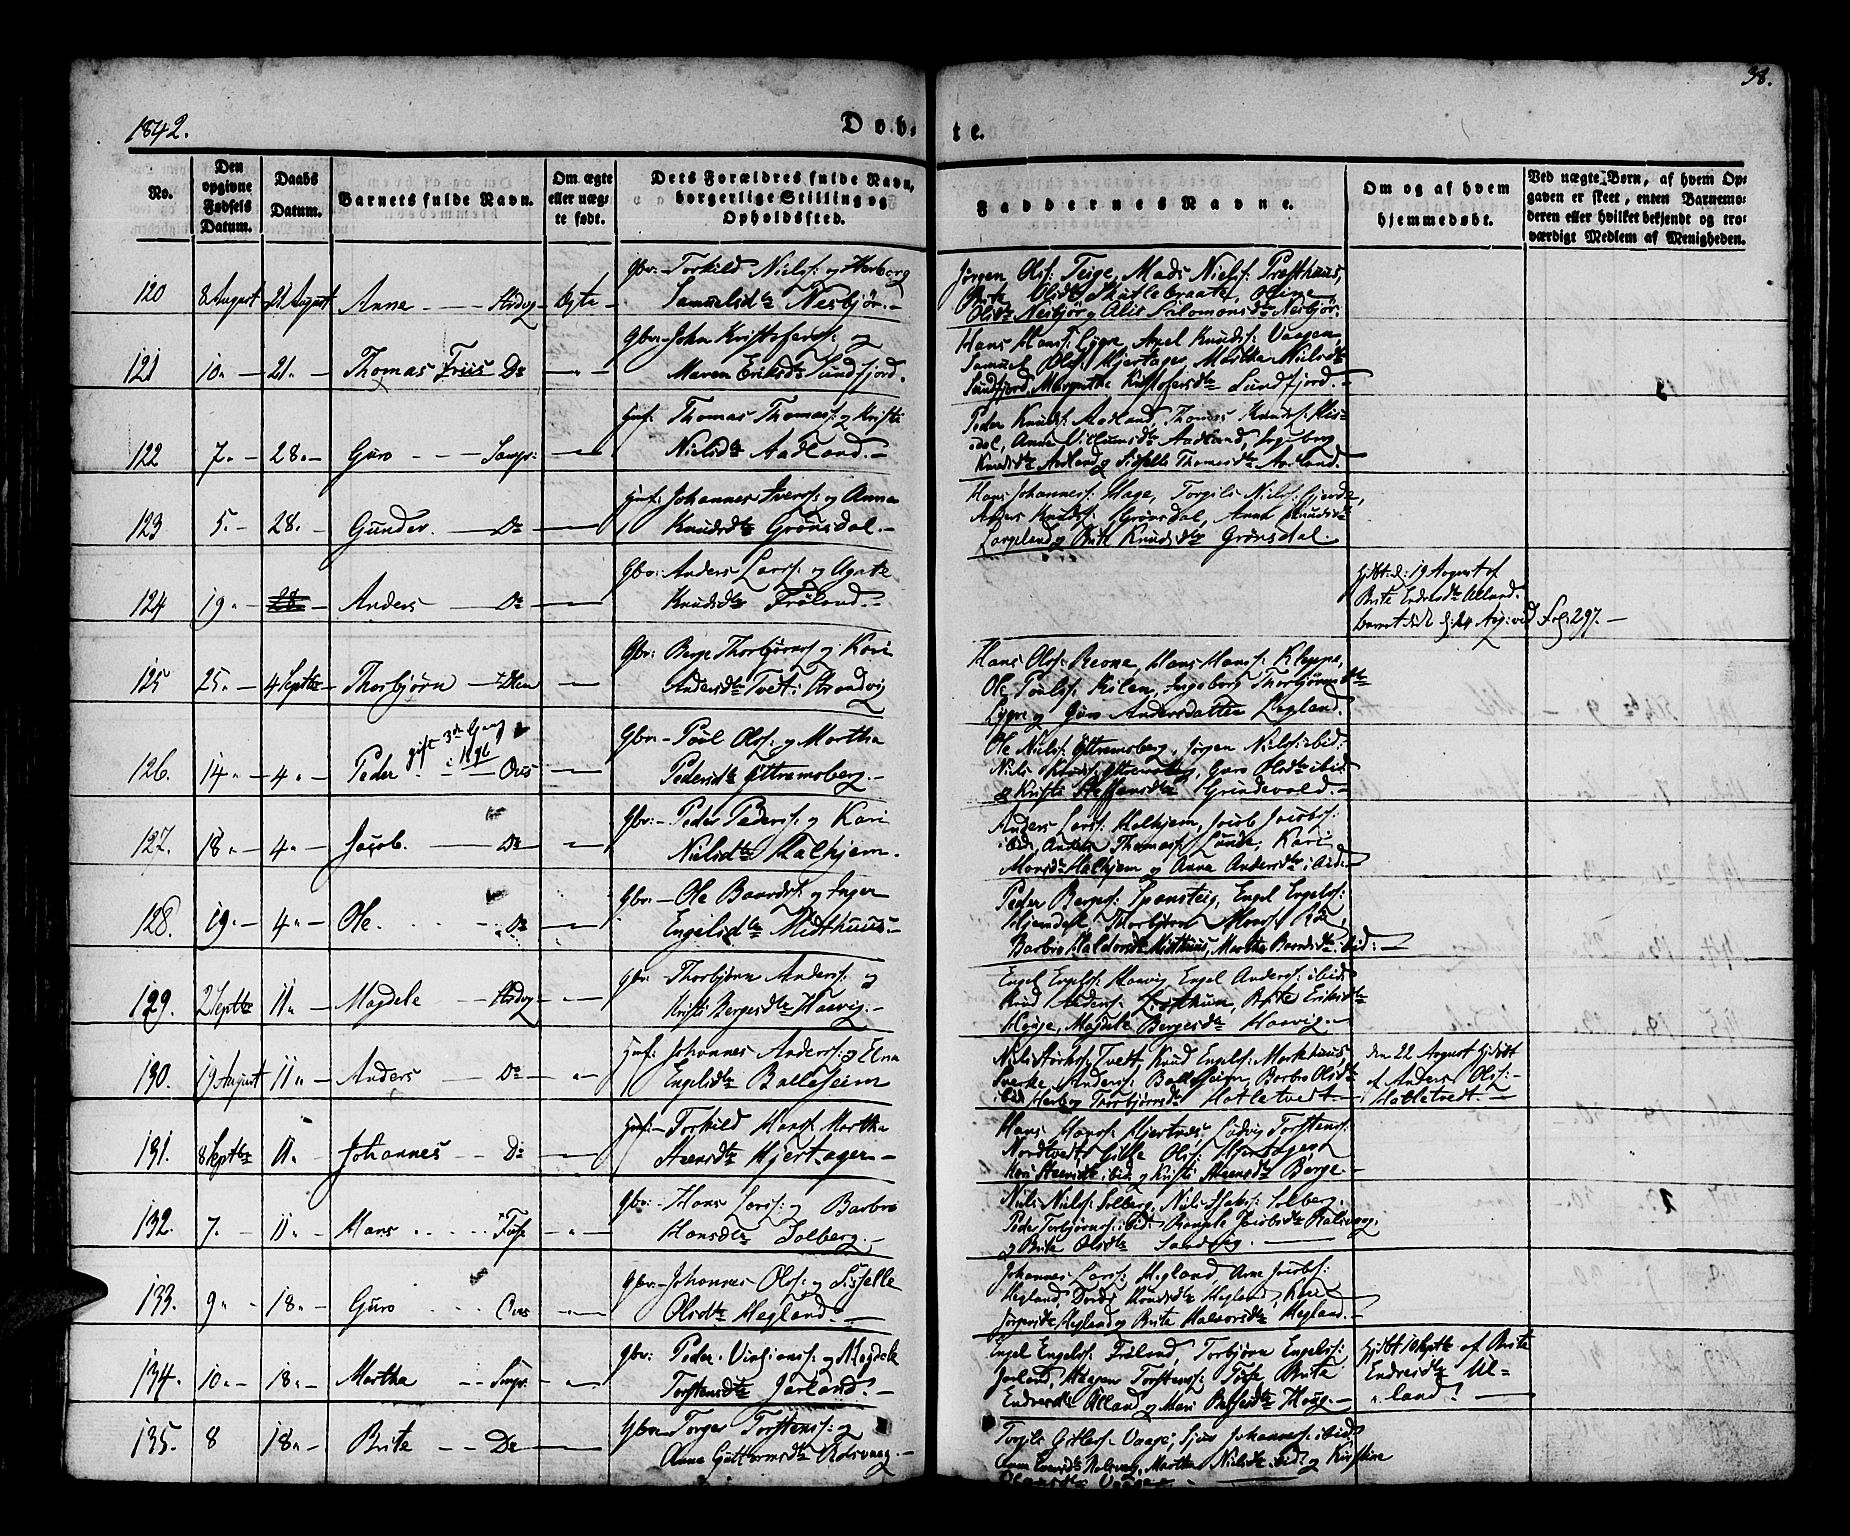 38.
1842.
Døb- te.
No.
Den opgivne Fødsels Datum.
Daabs Datum.
Barnets fulde Navn.
Om ægte eller uægte født.
Dets Forældres fulde Navn, borgerlige Stilling og Opholdssted.
Faddernes Navne.
Om og af hvem hjemmedøbt.
Ved uægte Børn, af hvem Op-
gaven er skeet, enten Barnemo-
deren eller hvilket bekjendt og tro-
værdigt Medlem af Menigheden.
120 8 August 21 August Anna — Strdvg — ægte
Gbr: Torkild Nielss: og Herborg
Samuelsdtr Nesbjør. —
Jørgen Olss: Teige, Mads Nielss: Præsthuus,
Brite Olsdtr Skutlebraate, Oline
Olsdtr Nesbjør og Alis Salomonsdtr Nesbjør.
121 10 " 21 " Thomas Friis Do — " —
Gbr: John Kristoferss: og
Maren Eriksdtr Sundfjord.
Hans Hanss: Lygre, Axel Knudss: Vaagen,
Samuel Olss: Hjertager, Martha Nielsdtr
Sundfjord, Margrethe Kristofersdtr Sundfjord. —
122 7 " 28 " — Guro — Samgr: —
Huf: Thomas Thomass: og Kristi
Nielsdtr Aadland. —
Peder Knudss: Aadland, Thomas Knudss:
Anna Villumsdtr Aadland, Ingeborg
Knudsdtr Aadland og Sidselle Thomasdtr Aadland.
123 5 " 28 " Gunder. — Do —
Huf: Johannes Iverss: og Anna
Knudsdtr Grønsdal. —
Hans Johanness: Hage, Torgils Nielss: Gjerde,
Anders Knudss: Grønsdal, Anna Knudsdtr
Langeland og Brite Knudsdtr Grønsdal.
124 19 " 28 — Anders — Do —
Gbr: Anders Larss: og Agate
Knudsdtr Frøland. —
Hjdbt: d: 19 August af
Brite Endresdtr Alland.
Barnet døde d: 24 Aug: vid Fol: 297. —
125 25 " — 4 Septbr — Thorbjørn — Ølen —
Gbr: Berge Thorbjørns: og Kari
Andersdtr Tvet i Strandvig
Hans Olss: Reone, Hans Hanss: Kleppe,
Ole Poulss: Kilen, Ingeborg Thorbjørnsdtr
Lygre og Guro Andersdatter Hegland.
126. 14 " 4 " Peder gift 3die Gang i 1896 — Oves —
Gbr — Poul Olss: og Martha
Pedersdtr Yttremsberg. —
Ole Nielss: Yttremsberg, Jørgen Nielss: ibid:
Niels Knudss: Yttremsberg, Guro Olsdtr ibid:
& Kristi Steffensdtr Grindevold. —
127. 18 " 4 " Jacob. — Do —
Gbr: Peder Peders: og Kari
Nielsdtr Halhjem.
Anders Larss: Holhjem, Jacob Jacobss:
ibid, Anders Thomass: Lunde, Kari
Monsdtr Halhjem og Anna Andersdtr ibid. —
128. 19 " 4 " — Ole. — Do —
Gbr: — Ole Baardss: og Inger
Engelsdtr Midthuus. —
Peder Bergess: Spansteig, Engel Engelss:
Hjemdal, Thorbjørn Monss: Røe,
Barbro Haldorsdtr Midthuus, Martha Baardsdtr ibid: —
129. 2 Septbr 11 " Magdele — Strdvg — " —
Gbr: Thorbjørn Anderss: og
Kristi Bergesdtr Haavig. —
Engel Engelss: Haavig, Engel Anderss: ibid:
Knud Anderss: Lepthun, Brite Eriksdtr
Houge, Magdele Bergesdtr Haavig. —
130. 19 August 11 " — Anders — Do — " —
Huf: Johannes Anderss: og Elna
Engelsdtr Balleseim
Niels Tvett, Knud Engelss: Markhuus,
Sverke Anderss: Balleseim, Barbro Olsdtr
ibid, Herborg Thorbjørnsdtr Hatletvedt —
den 22 August hjdbt
af Anders Olss: —
i Hatletvedt —
131. 8 Septbr 11. — Johannes — Do —
Huf: — Torkild Hanss: Martha
Steensdtr Hjertager —
Hans Hanss: Hjertnes, Ludvig Torstenss:
Nordtvedt, Gitle Olss: Hjertager
Kari Steensdtr ibid: og Kristi Steensdtr Berge. —
132. 7 " 11 " Hans — Fuse — " —
Gbr: Hans Larss: og Barbro
Hansdtr Solberg. —
Niels Nielss: Solberg, Niels Isaks: Solberg.
Peder Torbjørnss: ibid: Rangele Jacobsdtr Holsvaag,
og Brite Olsdtr Sandvig. —
133. 9 " 18 " — Guro — Oves — " —
Gbr: Johannes Olss: og Sisselle
Olsdtr Hegland. —
Johannes Larss: Hegland, Arne Jacobss:
Hegland, Dordi Knudsdtr Hegland, Kari
Jørgensdtr Hegland og Brite Halvorsdtr Hegland. —
134. 10 " 18 " — Martha — Smgr. — " —
Gbr: Peder Vinsjanss: og Magdele
Torstensdtr Jarland. —
Engel Engelss: Frøland, Torbjørn Engelss:
Jarland, Haagen Torstenss: Fuse, Brite
Endresdtr Alland og Mari Bergesdtr Houg —
hjdbt 10 Septbr af Brite
Endresdtr Al-
land! —
135. 8 18 " — Brite — Do —
Gbr — Torger Torstenss: og
Anna Guttormsdtr Holsvaag. —
Torgils Gitless: Vaage, Sjur Johanness: ibid
Anna Holsvaag, Martha Nielsdtr ibid: og Kirstine